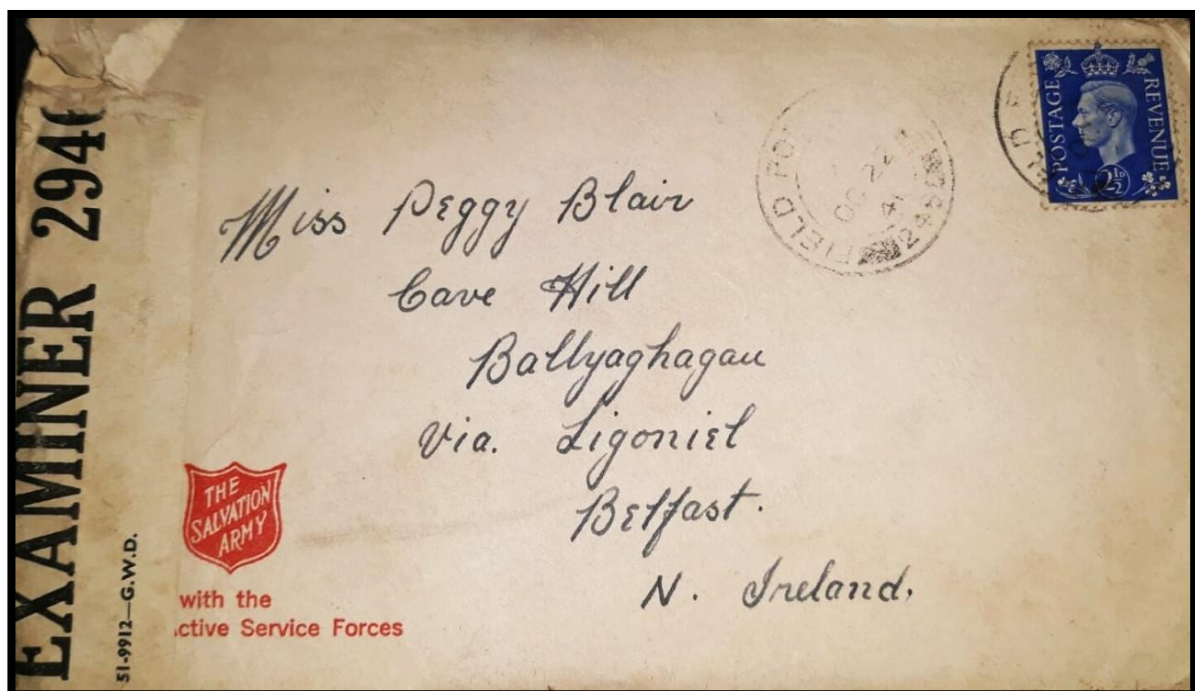 EXAMINER 294
51-9912—G.W.D.
POSTAGE
REVENUE
2½D
FIELD PO
OC 22
41
Miss Peggy Blair
Cave Hill
Ballyaghagan
Via. Ligoniel
Belfast.
N. Ireland.
THE
SALVATION
ARMY
with the
ctive Service Forces